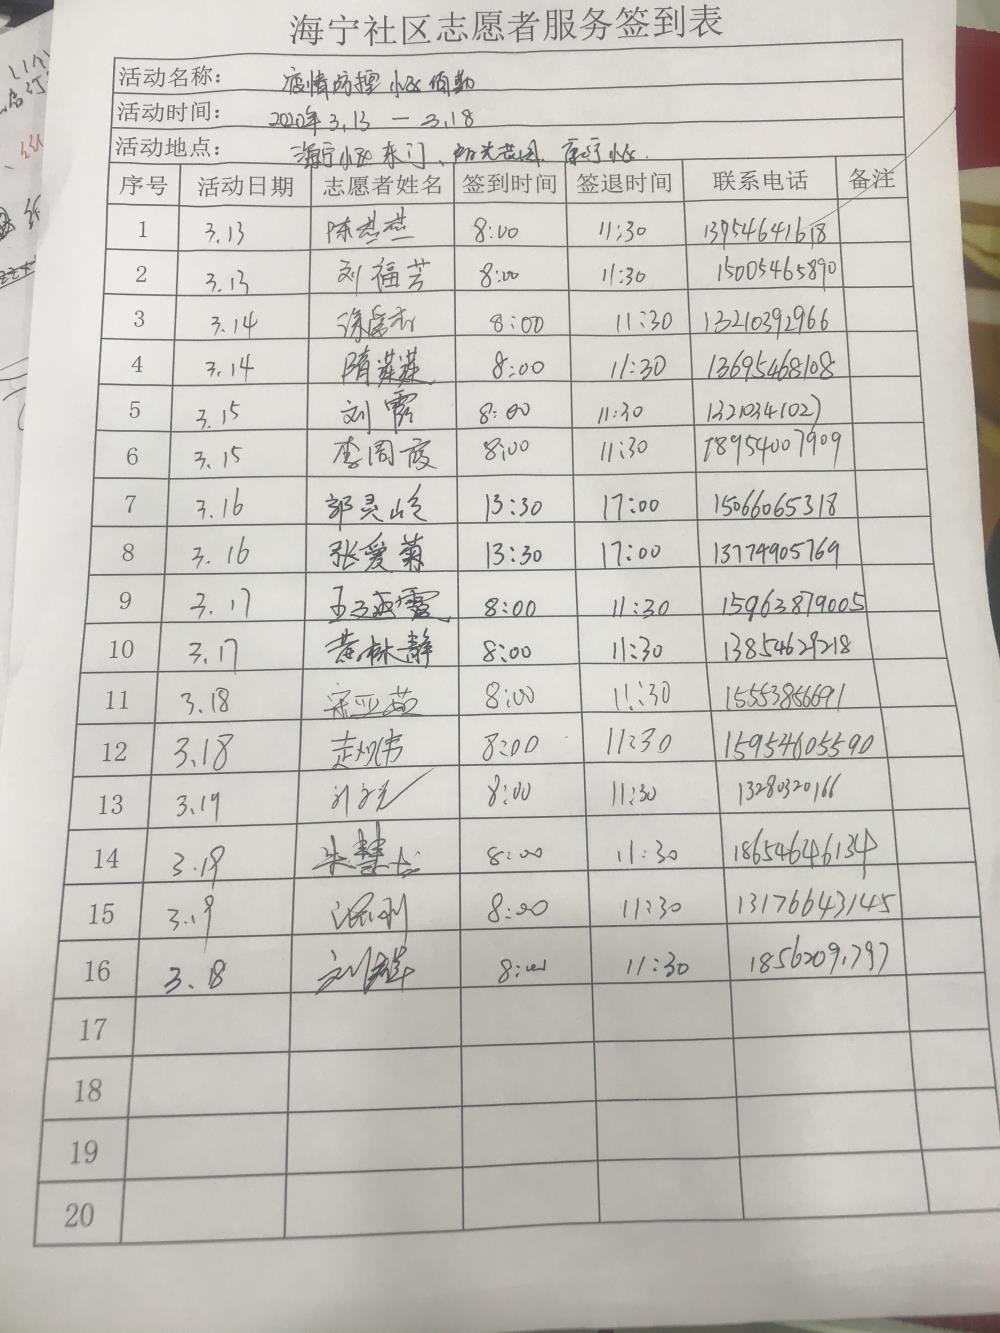 海宁社区志愿者服务签到表
活动名称: 疫情防控小区值勤
活动时间: 2020年3.13 — 3.18
活动地点: 海宁小区东门、阳光花园、康宁小区.
序号 活动日期 志愿者姓名 签到时间 签退时间 联系电话 备注
1 3.13 陈燕燕 8:00 11:30 13954641618
2 3.13 刘福芳 8:00 11:30 15005465890
3 3.14 8:00 11:30 13210392966
4 3.14 隋燕燕 8:00 11:30 13695468108
5 3.15 刘霞 8:00 11:30 13210341027
6 3.15 李周霞 8:00 11:30 18954007909
7 3.16 郭灵屹 13:30 17:00 15066065318
8 3.16 张爱菊 13:30 17:00 13774905769
9 3.17 8:00 11:30 15963879005
10 3.17 黄林静 8:00 11:30 13854629218
11 3.18 宋亚茹 8:00 11:30 15553856691
12 3.18 8:00 11:30 15954605590
13 3.19 8:00 11:30 13280320166
14 3.19 朱慧 8:00 11:30 18654646134
15 3.19 8:00 11:30 13176643145
16 3.18 8:00 11:30
17
18
19
20